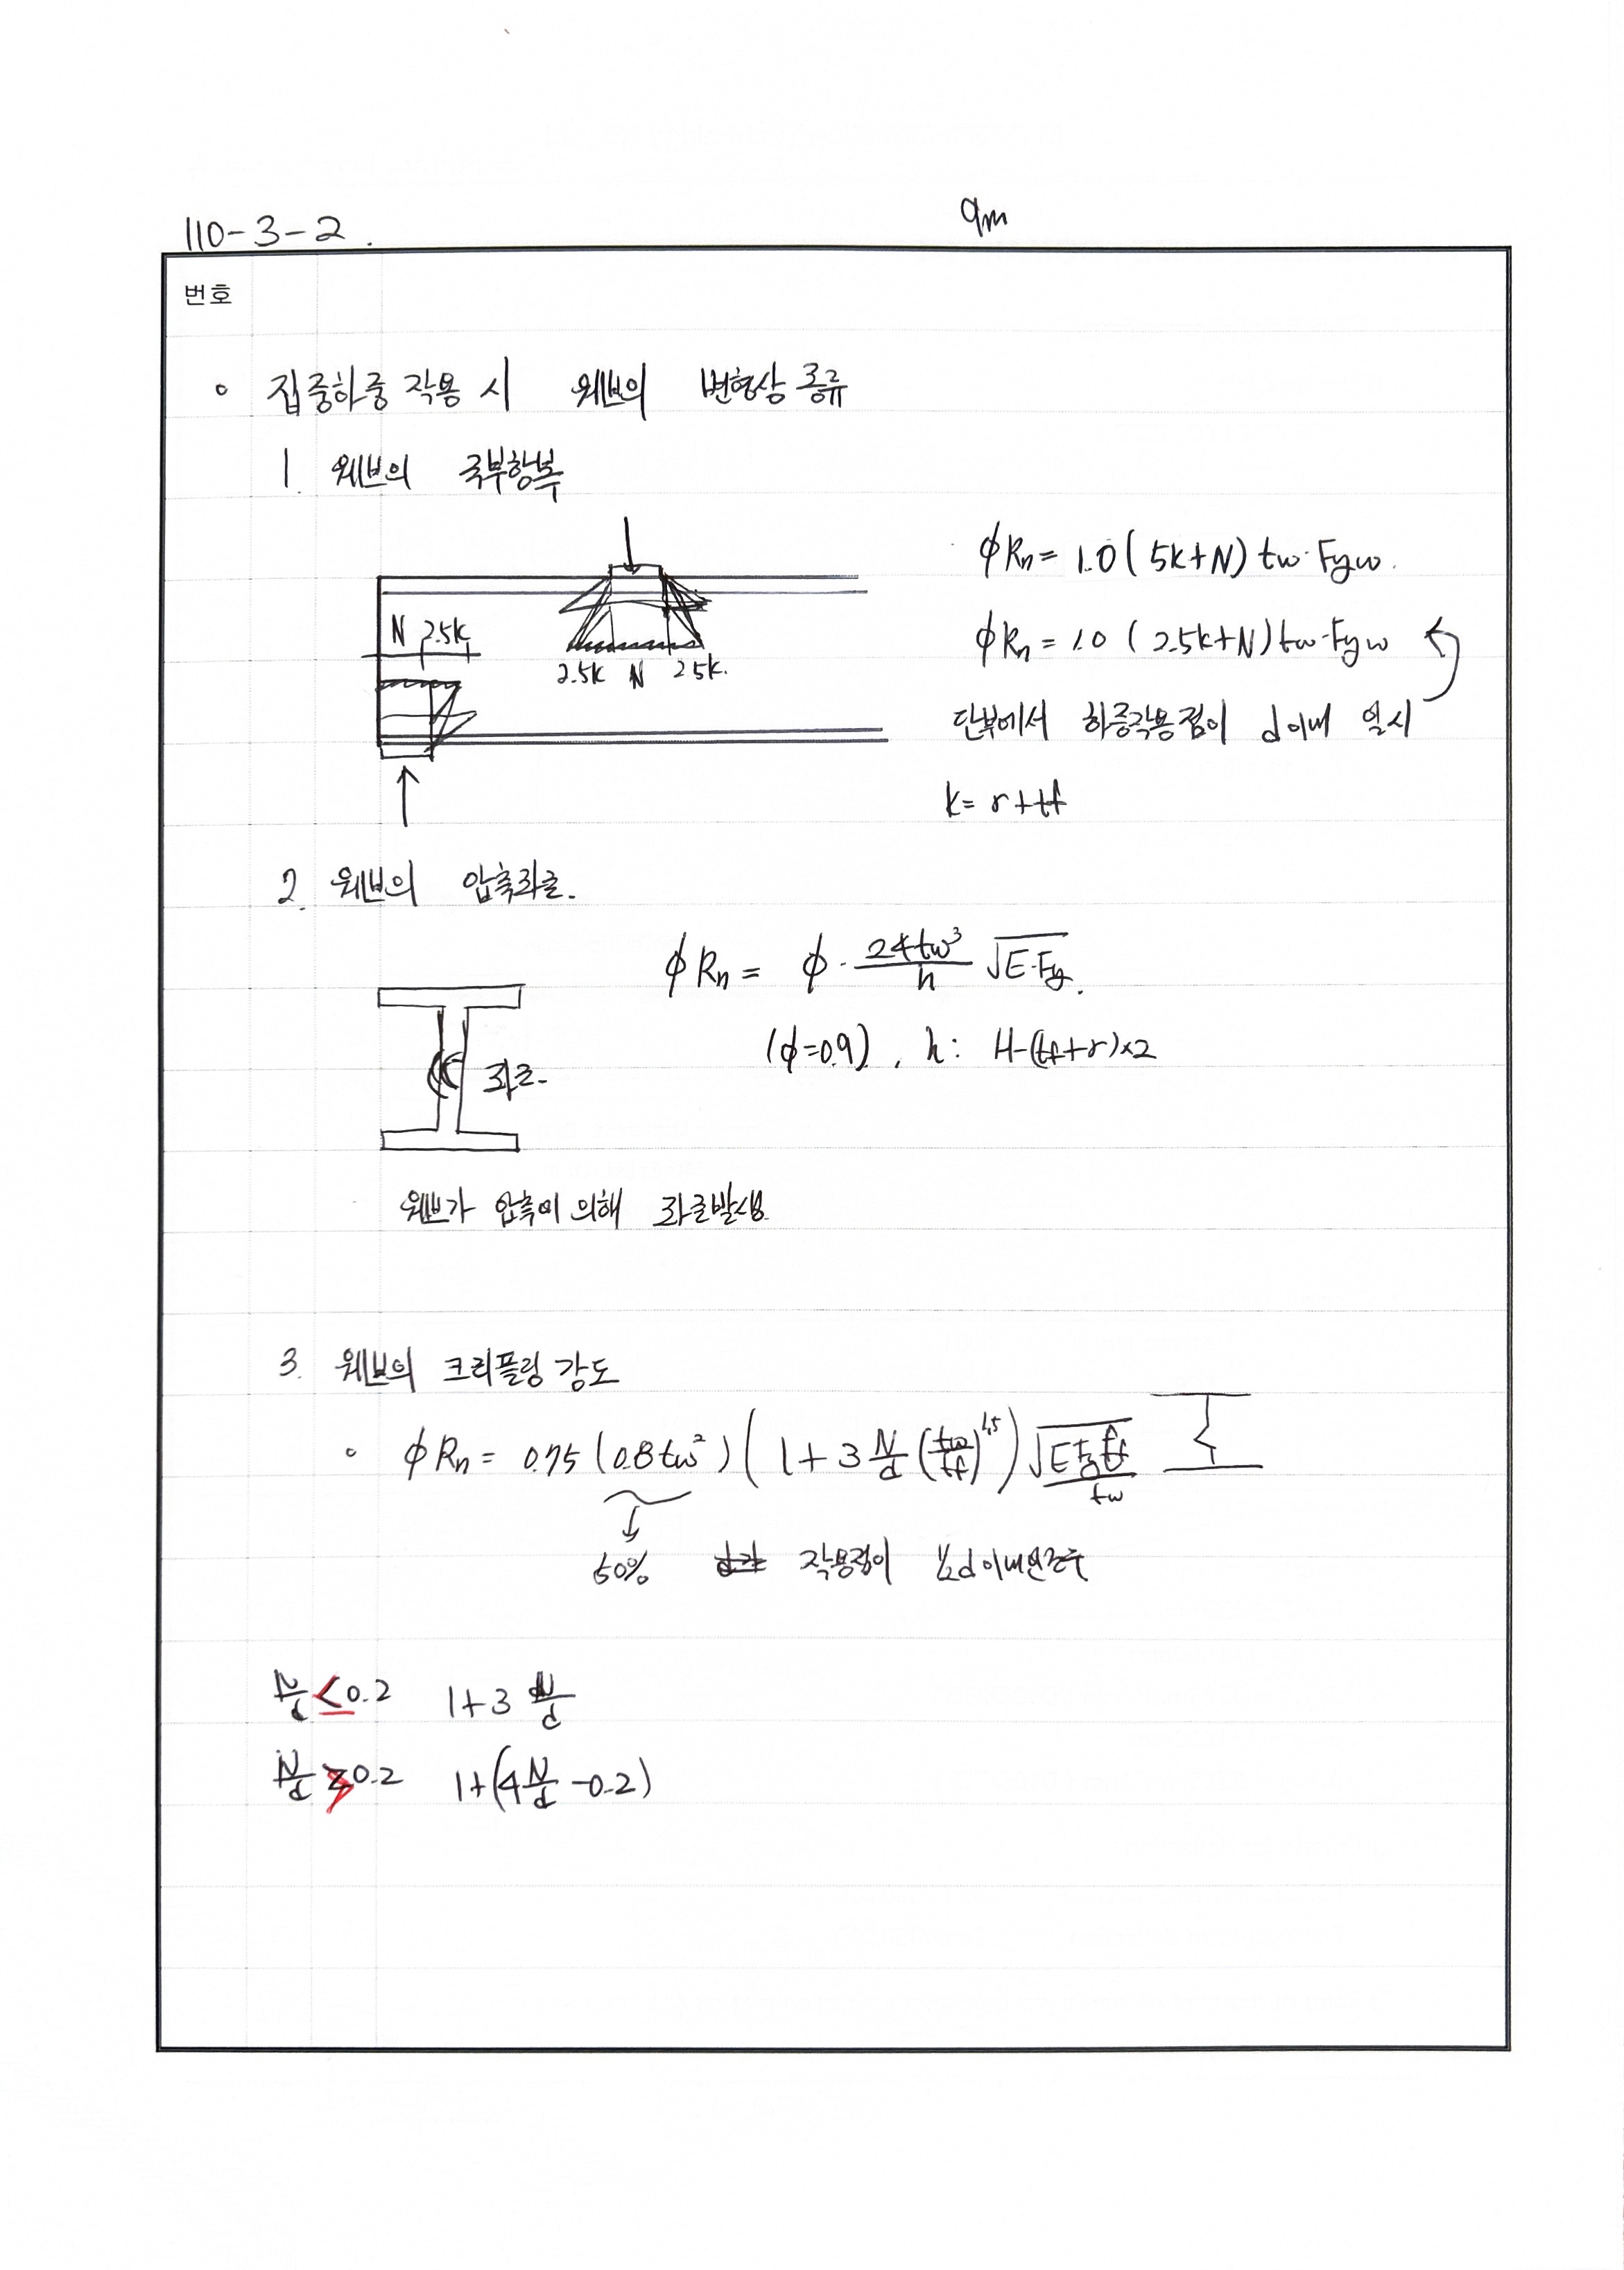 110-3-2.
9m
번호
○ 집중하중 작용 시 웨브의 변형상 종류
1. 웨브의 국부항복
φRn = 1.0(5k+N) tw·Fyw.
φRn = 1.0 (2.5k+N) tw·Fyw
N 2.5k
2.5k N 2.5k.
단부에서 하중작용점이 d이내 일시
k = r + tf
2. 웨브의 압축좌굴.
φRn = φ · 24tw³/h √E·Fy.
(φ=0.9), h: H-(tf+r)×2
좌굴
웨브가 압축에 의해 좌굴발생
3. 웨브의 크리플링 강도
○ φRn = 0.75 (0.8tw²) (1+3 N/d (tw/tf)^1.5) √E Fy tf/tw
50% 작용점이 ½d이내인경우
N/d ≤ 0.2 1+3 N/d
N/d > 0.2 1+(4 N/d -0.2)